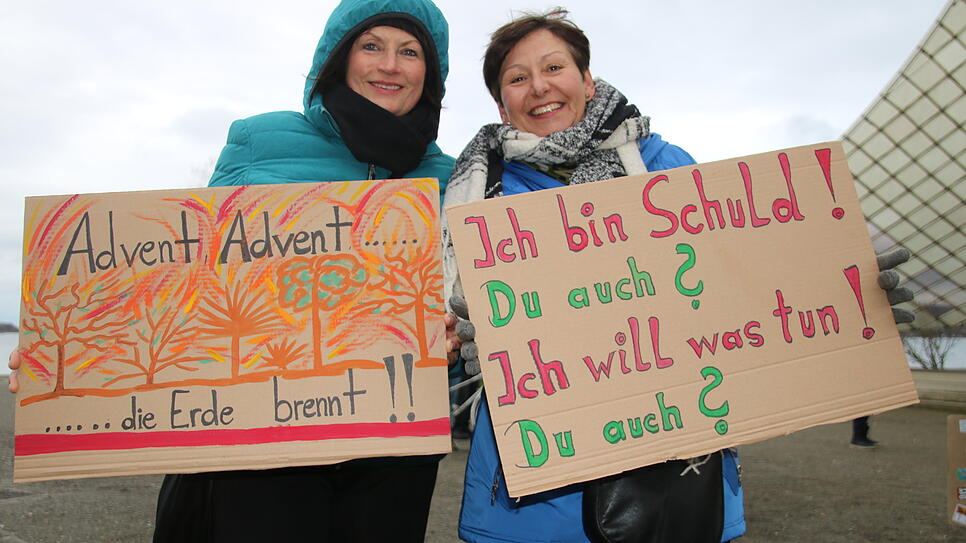 Advent, Advent......
......die Erde brennt!!
Ich bin Schuld!
Du auch?
Ich will was tun!
Du auch?